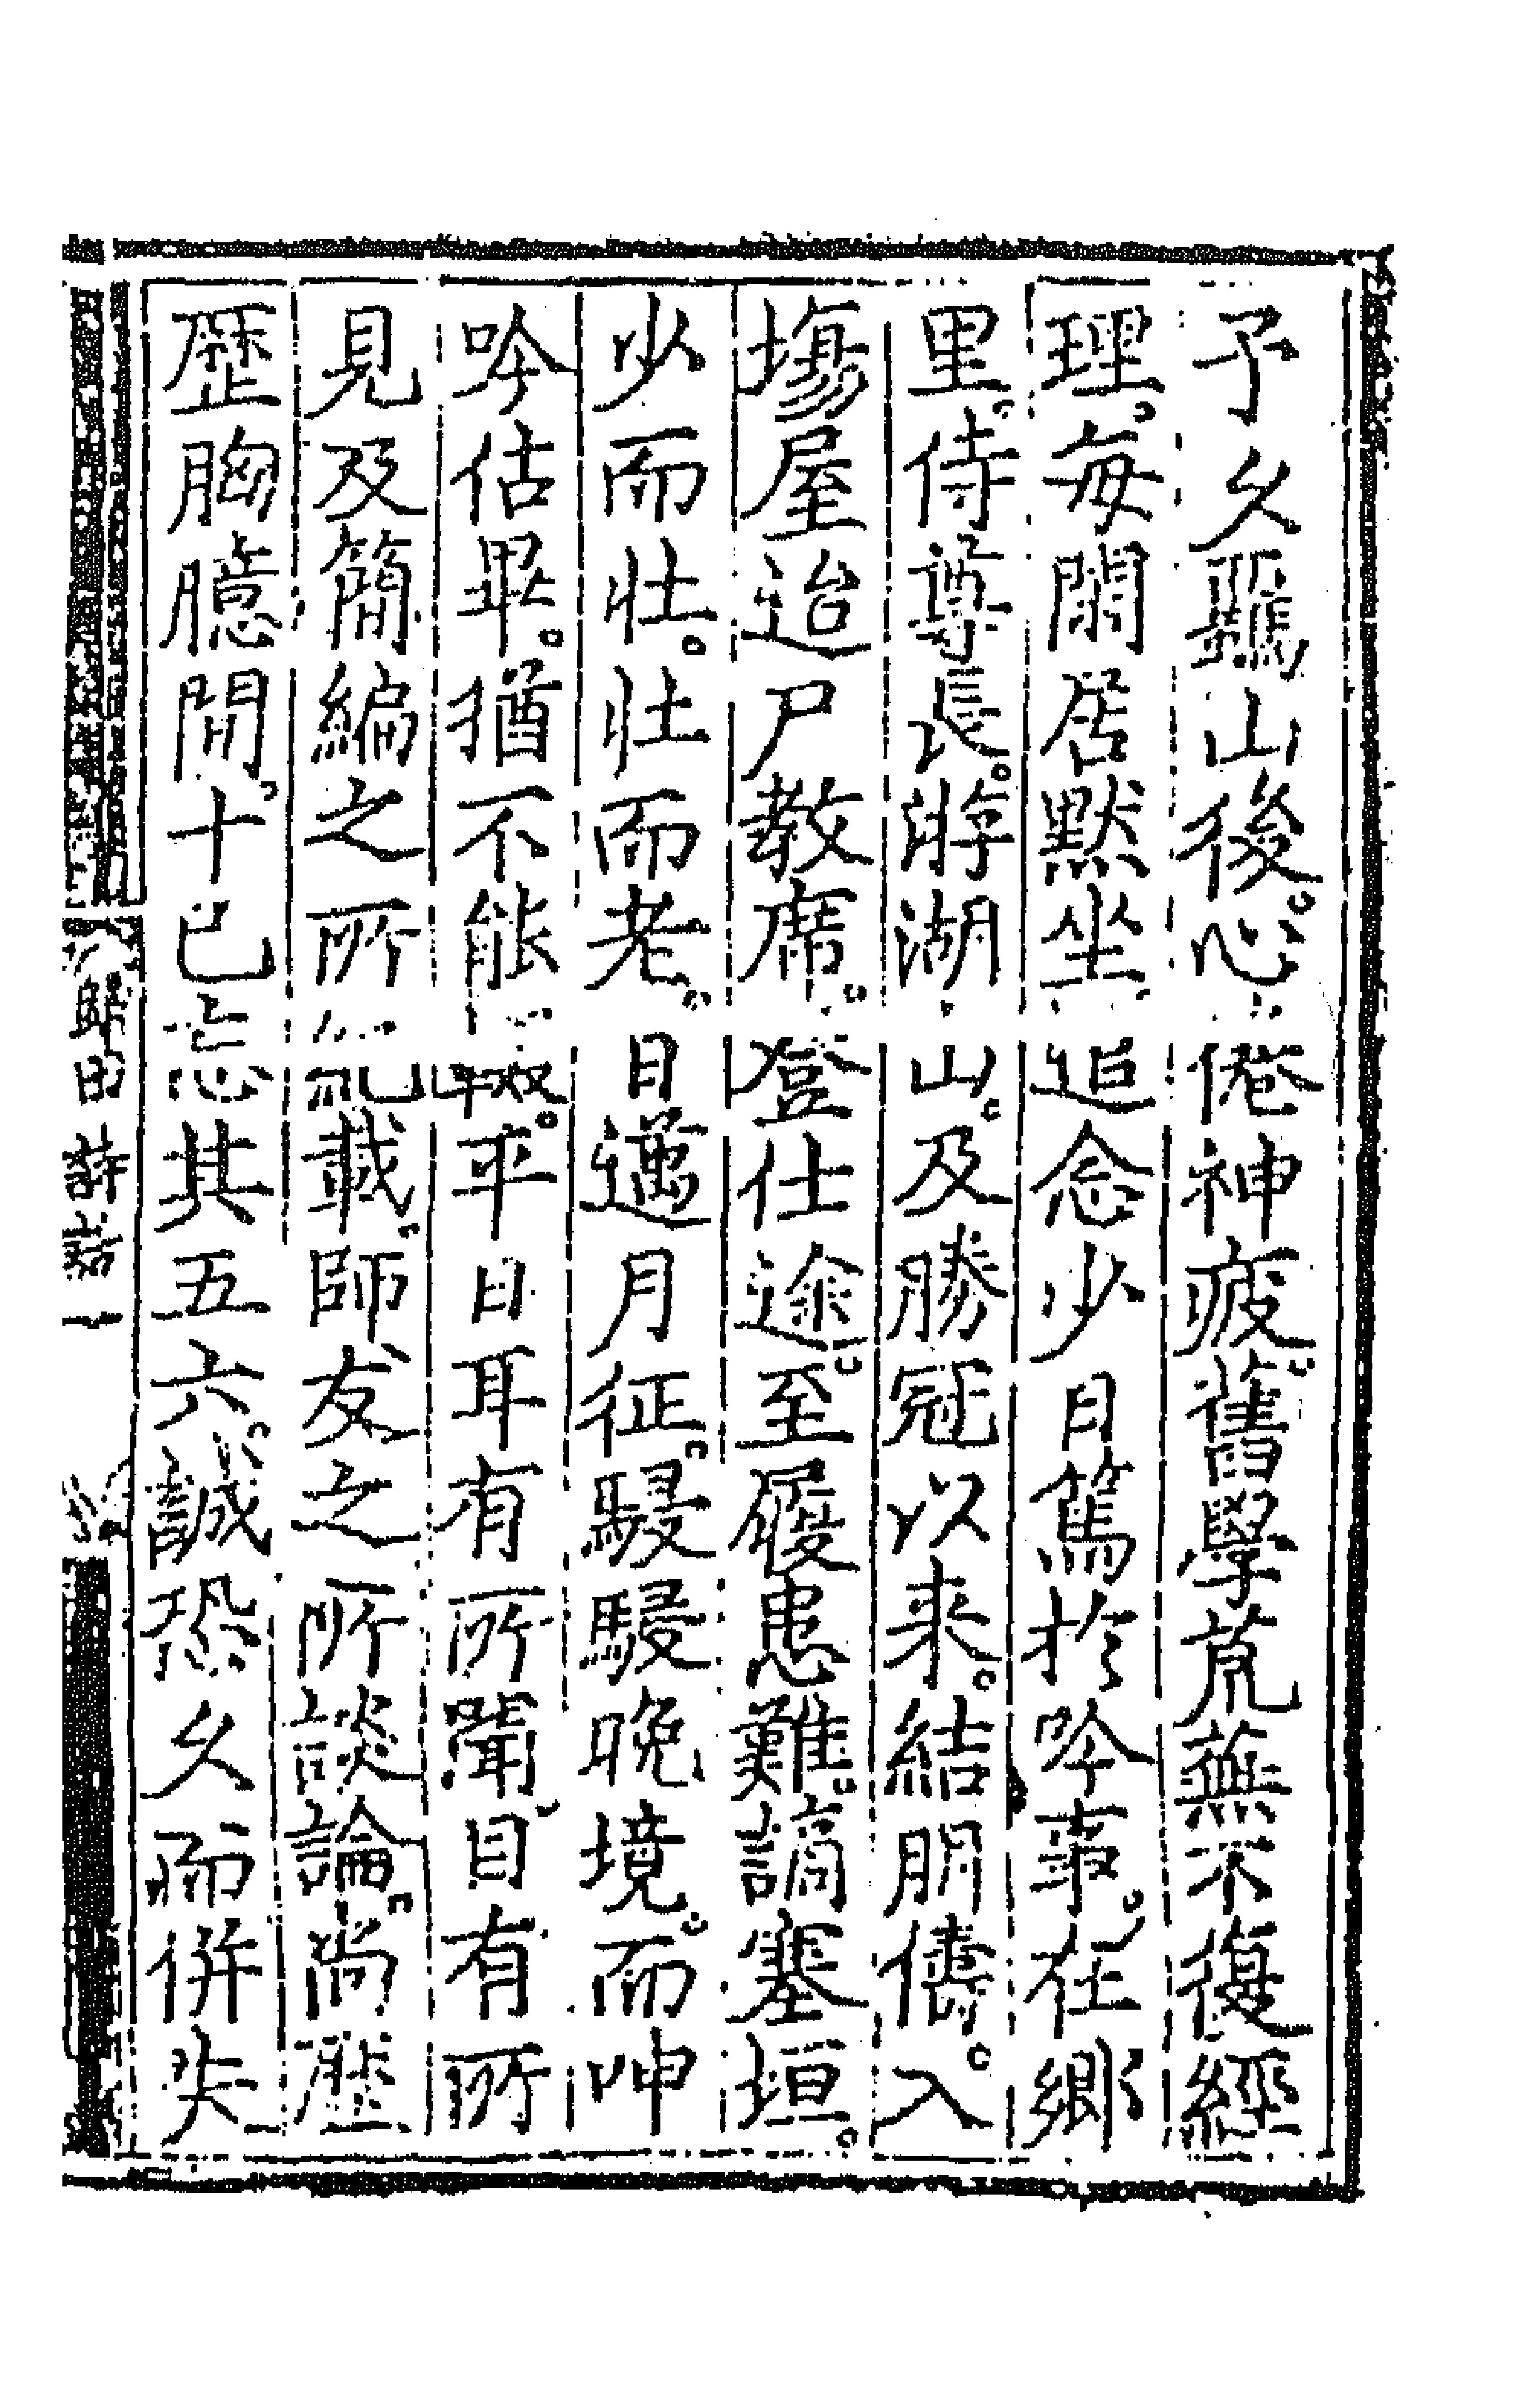 予久羈山後。心倦神疲。舊學荒蕪不復經
理。每閑居默坐追念少日篤於吟事。在鄉
里。侍尊長。游湖山。及勝冠以來。結朋儔。入
塲屋迨尸教席。登仕途。至履患難。謫塞垣。
少而壯。壯而老。日邁月征。駸駸晚境。而呻
吟佔畢。猶不能輟。平日耳有所聞目有所
見及簡編之所紀載。師友之所談論。尚歷
歷胸臆間。十已忘其五六。誠恐久而併失
歸田 詩 一